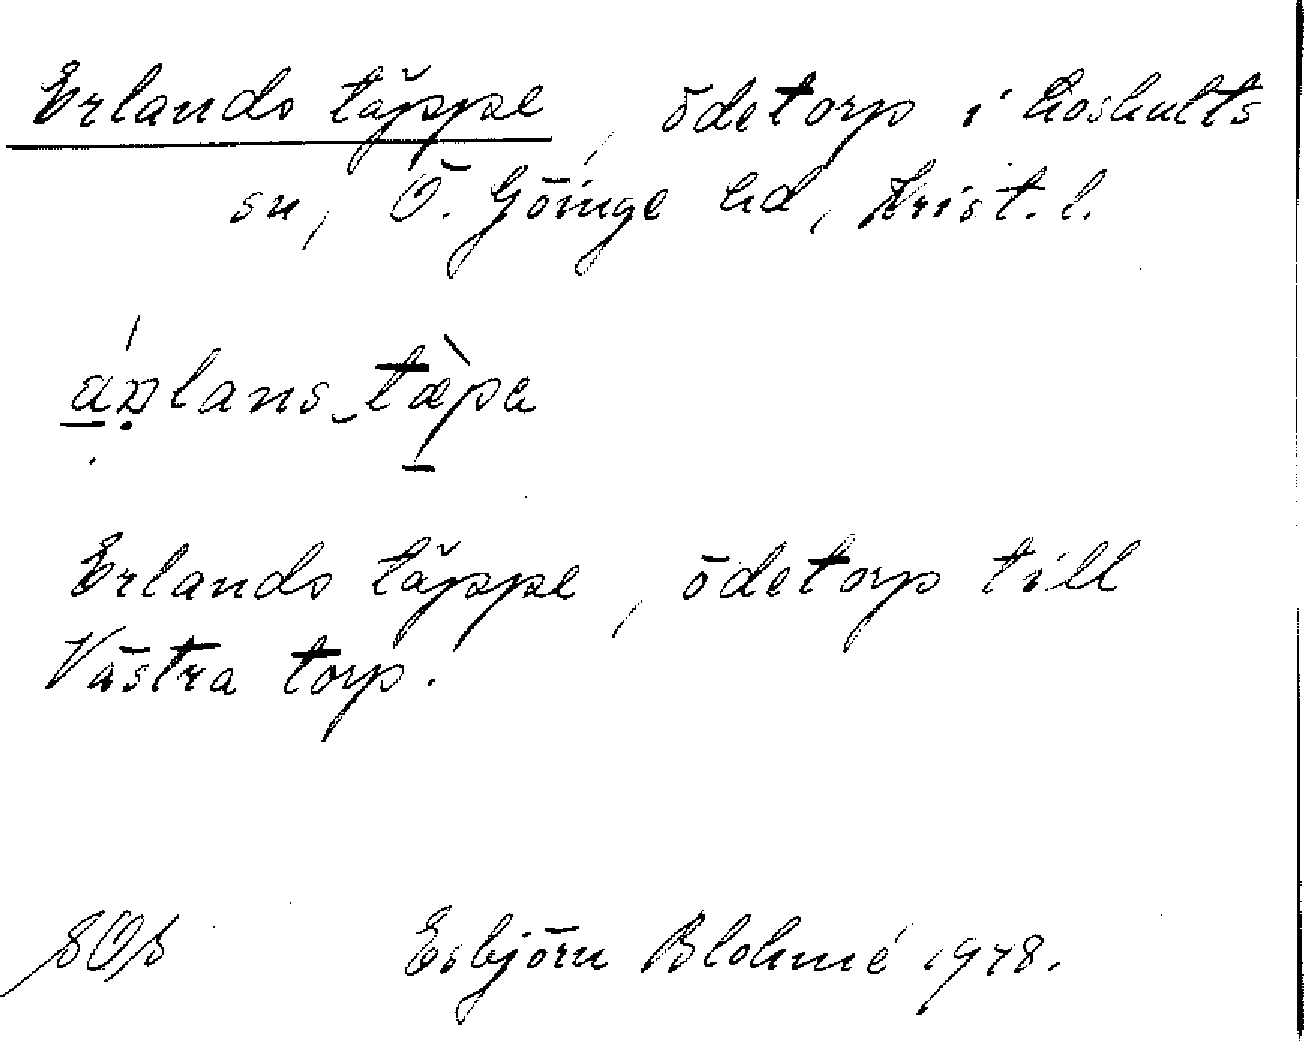 Erlands täppe, ödetorp i Loshults
sn, Ö. Göinge hd, Krist. l.
Erlands täppe, ödetorp till
Västra torp.
Esbjörn Blohmé 1948.